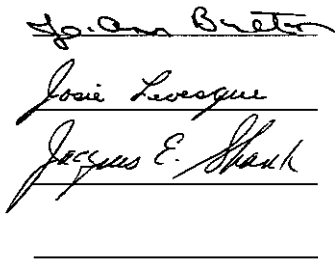 Jo-Ann Breton
Josie Levesque
Jacques E. Shank